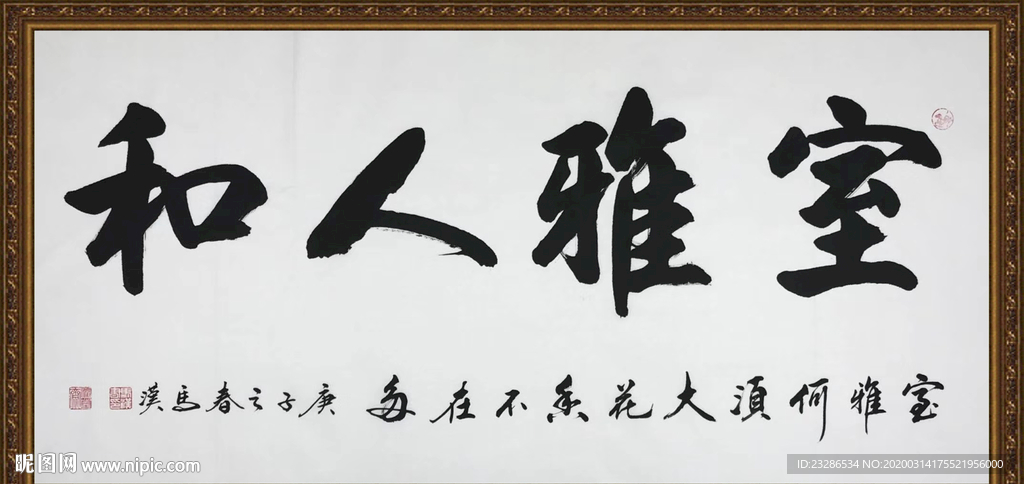 室雅人和
室雅何須大花香不在多 庚子之春馬漢
昵图网 www.nipic.com
ID:23286534 NO:20200314175521956000